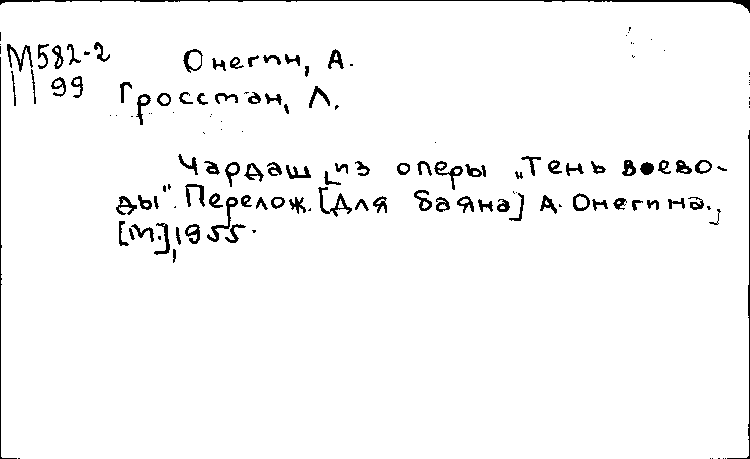 М582-2 Онегин, А.
99 Гроссман, Л.
Чардаш из оперы „Тень воево-
ды". Перелож. [для баяна] А. Онегина.,
[М.], 1955.